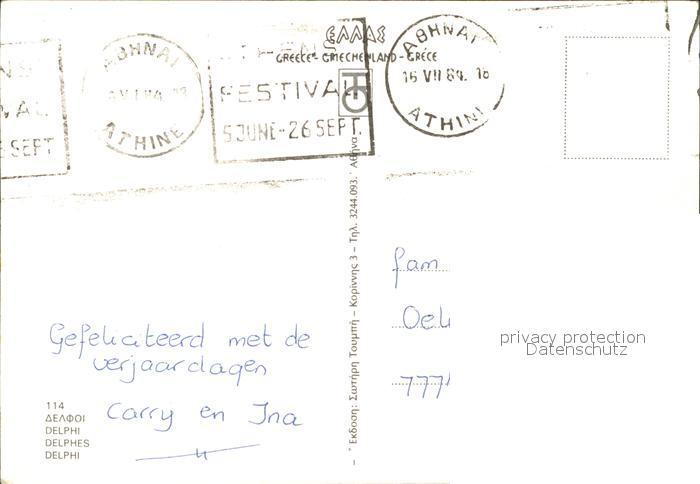 ΕΛΛΑΣ
GREECE - GRIECHENLAND - GRÈCE
ΑΘΗΝΑΙ
ATHINE
ATHENS
FESTIVAL
5 JUNE - 26 SEPT.
ΑΘΗΝΑΙ
16 VII 84. 18
ATHINE
NS
VAL
SEPT
Ἔκδοση: Σωτήρη Τουμπή - Κορίννης 3 - Τηλ. 3244.093. Ἀθήνα
fam
Gefeliciteerd met de
verjaardagen
Carry en Ina
114
ΔΕΛΦΟΙ
DELPHI
DELPHES
DELPHI
privacy protection
Datenschutz